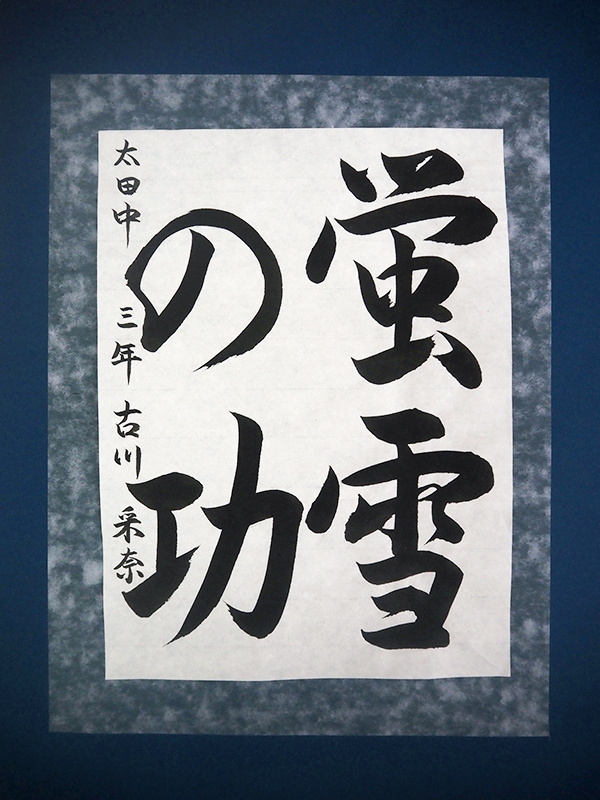 蛍雪
の功
太田中 三年 古川 采奈